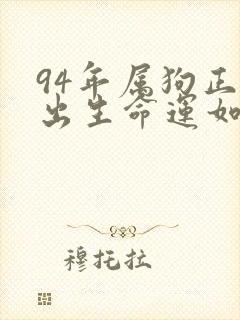 94年属狗正
出生命运如
穆托拉